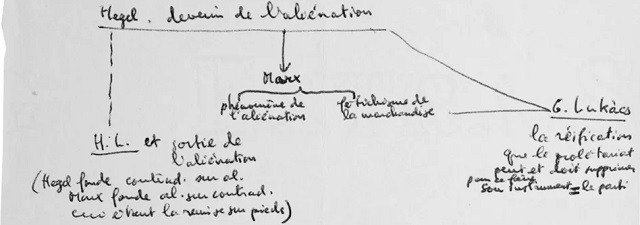 Hegel. devenir de l'aliénation
Marx
phénomène de
l'aliénation
fétichisme de
la marchandise
G. Lukàcs
la réification
que le prolétariat
peut et doit supprimer
pour ce faire
son instrument = le parti
H.L. et sortie de
l'aliénation
(Hegel fonde contrad. sur al.
Marx fonde al. sur contrad.
ceci étant la remise sur pieds)